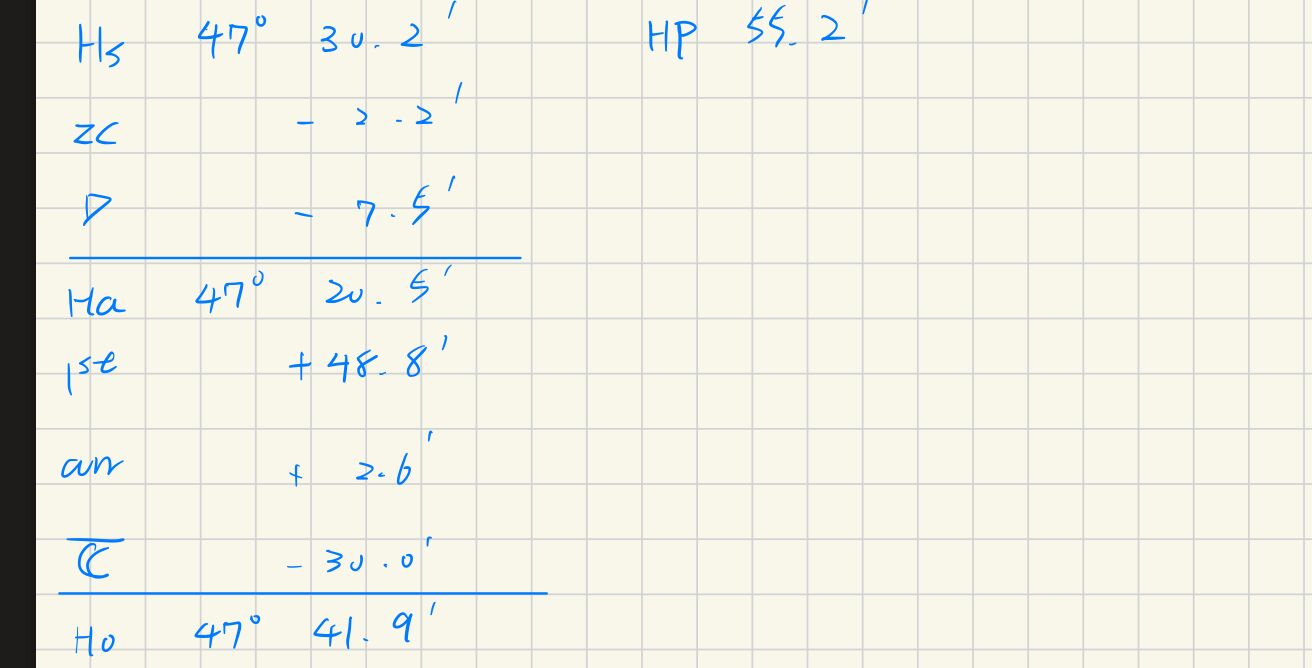 Hs 47° 30.2' HP 55.2'
IC - 2.2'
D - 7.5'
Ha 47° 20.5'
1st + 48.8'
+ 2.6'
- 30.0'
Ho 47° 41.9'